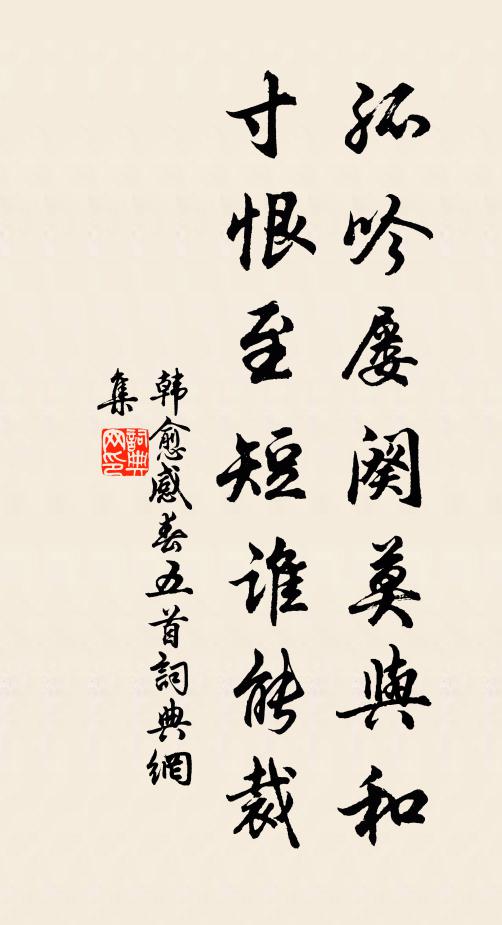 孤吟屡阕莫與和
寸恨至短誰能裁
韩愈感春五首詞典網
集
詞典网印